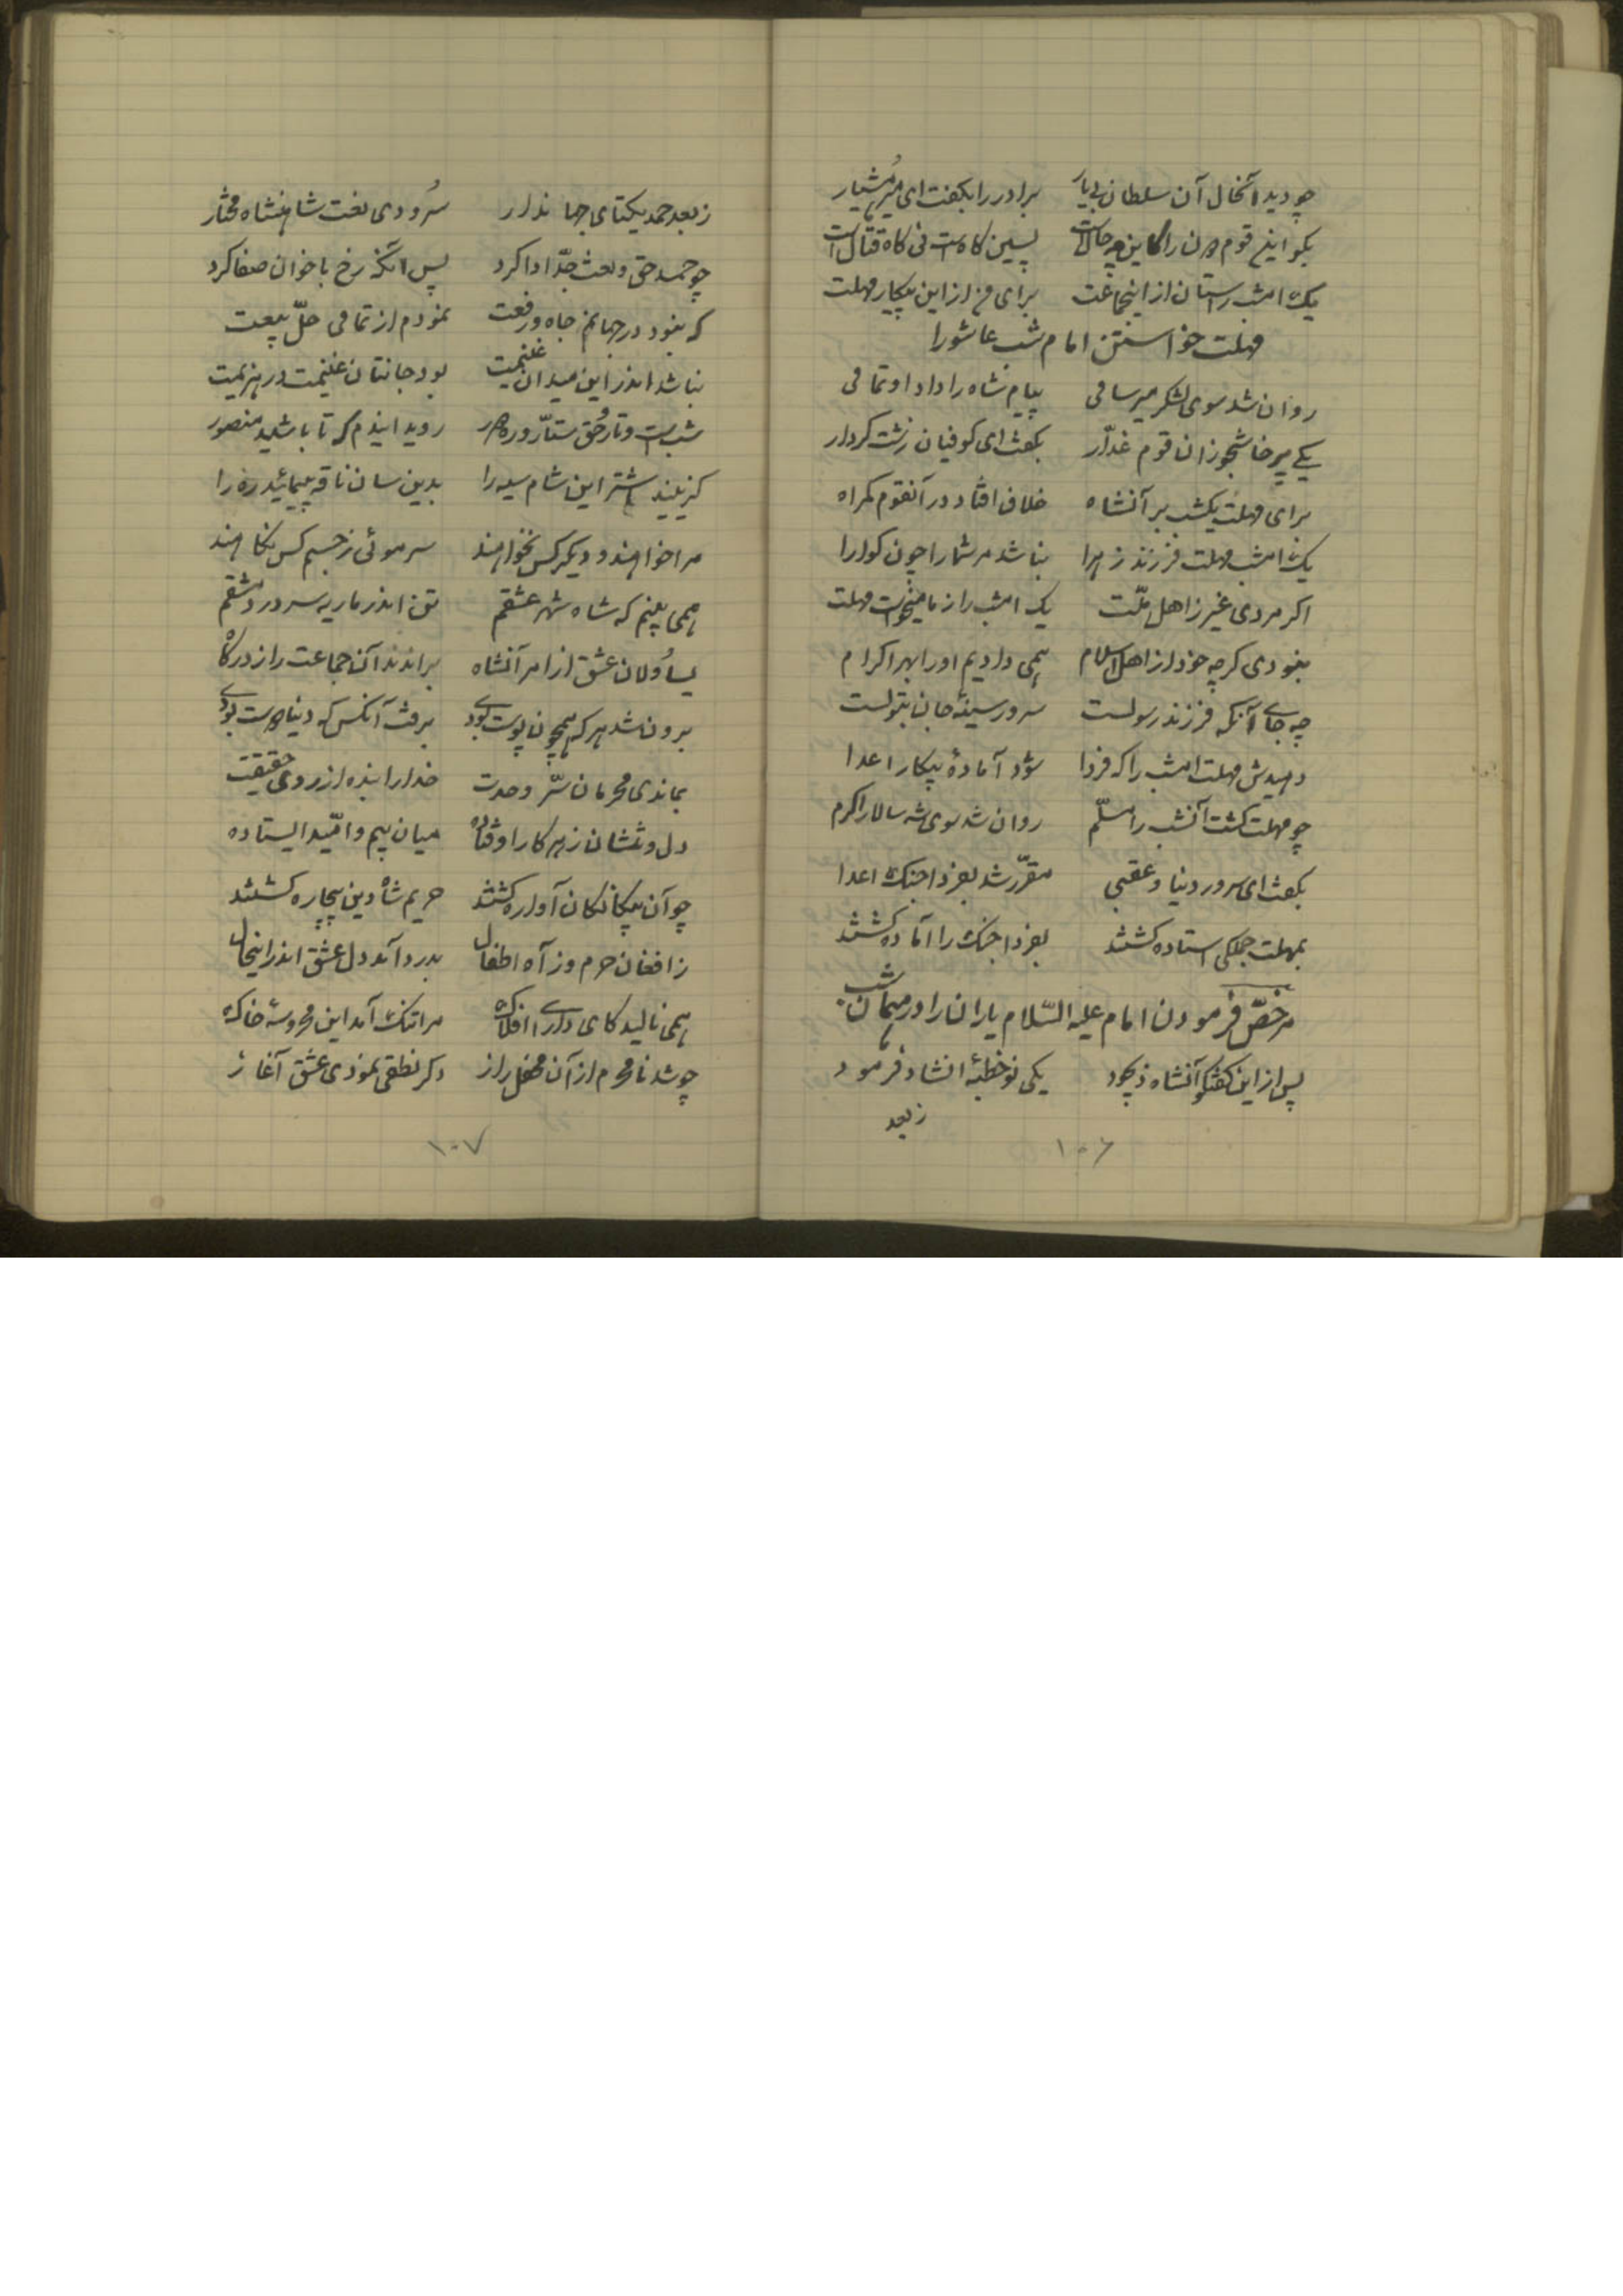 چو دید آنحال آن سلطان بی یار برادر را بگفت ای میر هشیار
بگو این قوم دون را کاین چه حالست پسین گاهست نی گاه قتال است
یک امشب را ستان از اینجماعت برای من از این پیکار مهلت
مهلت خواستن امام شب عاشورا
روان شد سوی لشکر میر سامی پیام شاه را داد او تمامی
یکی پرخاشجو زان قوم غدّار بگفت ای کوفیان زشت کردار
برای مهلت یکشب بر آنشاه خلاف افتاد در آنقوم گمراه
یک امشب مهلت فرزند زهرا نباشد مر شما را چون گوارا
اگر مردی غیر ز اهل ملّت یک امشب را ز ما میخواست مهلت
نبودی گرچه خود از اهل اسلام همی دادیم او را بهر اکرام
چه جای آنکه فرزند رسولست سرور سینهٔ جان بتولست
دهیدش مهلت امشب را که فردا شود آمادهٔ پیکار اعدا
چو مهلت گشت آنشب را مسلّم روان شد سوی شه سالار اکرم
بگفت ای سرور دنیا و عقبی مقرّر شد بفردا جنگ اعدا
بمهلت جملگی استاده گشتند بفردا جنگ را آماده گشتند
مرخصّ فرمودن امام علیه السّلام یاران را در همان شب
پس از این گفتگو آنشاه ذیجود یکی نو خطبهٔ انشاد فرمود
ز بعد
۱۰۶
ز بعد حمد یکتای جهاندار سرودی نعت شاهنشاه مختار
چو حمد حق و نعت جدّ ادا کرد پس آنگه رخ باخوان صفا کرد
که نبود در جهانم جاه و رفعت نمودم از تمامی حلّ بیعت
نباشد اندر این میدان غنیمت بود جانتان غنیمت در هزیمت
شب است و تار و حق ستّار و ره دور روید ایندم که تا باشید منصور
گزینید اشتر این شام سیه را بدین سان ناقه پیمائید ره را
مرا خواهند و دیگر کس نخواهند سر موئی ز جسم کس نکاهند
همی بینم که شاه شهر عشقم تن اندر ماریه سر در دمشقم
یساولان عشق از امر آنشاه براندند آن جماعت را ز درگاه
برون شد هر که همچون پوست بودی برفت آنکس که دنیا دوست بودی
بماندی محرمان سرّ وحدت خدا را بنده از روی حقیقت
دل و دستشان ز هر کار اوفتاده میان بیم و امّید ایستاده
چو آن بیگانگان آواره گشتند حریم شاه دین بیچاره گشتند
ز افغان حرم وز آه اطفال بدرد آمد دل عشق اندر اینحال
همی نالید کای دارای افلاک مرا تنگ آمد این محروسه خاک
چو شد نامحرم از آن محفل راز دگر نطقی نمودی عشق آغاز
۱۰۷